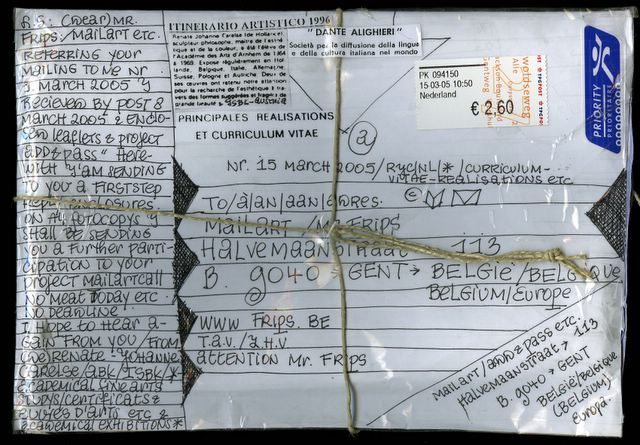 P.S: (Dear) MR.
FRIPS: / MAILART ETC.
REFERRING YOUR
MAILING TO ME NR.
3 MARCH 2005 "Y
RECIEVED BY POST 8
MARCH 2005 & ENCLO-
SED LEAFLETS & PROJECT
"ADD & PASS" HERE-
WITH Y'AM SENDING
TO YOU A FIRST STEP
REPLY ENCLOSURES
ON A4 FOTOCOPYS "Y
SHALL BE SENDING
YOU A FURTHER PARTI-
CIPATION TO YOUR
PROJECT MAILARTCALL
NO MEAT TODAY ETC.
NO DEADLINE!
I HOPE TO HEAR A-
GAIN FROM YOU / FROM
(ME) RENATE - YOHANNE
CARELSE / ABK / TSBK / *
ACADEMICAL FINE ARTS
STUDYS / CERTIFICATS &
D'ARTS ETC &
ACADEMICAL EXHIBITIONS *
ITINERARIO ARTISTICO 1996
Renate Johanne Carelse (de Hollande),
sculpteur philosophe, maître de l'esthétique
et de la couleur, a été l'élève de
l'Académie des Arts d'Arnhem de 1964
à 1969. Expose régulièrement en Hol-
lande, Belgique, Italie, Allemagne,
Suisse, Pologne et Autriche. Deux de
ses œuvres ont retenu notre attention
pour la recherche de l'esthétique à tra-
vers des formes suggérées et
grande beauté
PRINCIPALES REALISATIONS
ET CURRICULUM VITAE
"DANTE ALIGHIERI"
Società per la diffusione della lingua
e della cultura italiana nel mondo
PK 094150
15-03-05 10:50
Nederland
€ 2.60
TPG POST
PRIORITY
PRIORITAIRE
(a)
NR. 15 MARCH 2005 / RYC / NL / * / CURRICULUM-
VITAE-REALISATIONS ETC.
TO/À/AN/AAN/
MAILART / MR. FRIPS
HALVEMAANSTRAAT 113
B. 9040 → GENT → BELGIË/BELGIQUE
BELGIUM/EUROPE
WWW FRIPS. BE
T.A.V. / Z.H.V.
ATTENTION MR. FRIPS
MAILART/ADD & PASS ETC.
HALVEMAANSTRAAT → 113
B. 9040 → GENT
BELGIË/BELGIQUE
(BELGIUM)
EUROPA.